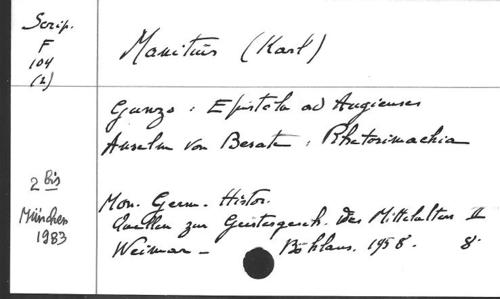 Scrip.
F
104
(2)
Manitius (Karl)
Gunzo : Epistola ad Augienses
Anselm von Besate : Rhetorimachia
2 Bis
München
1983
Mon. Germ. Histor.
Quellen zur Geistesgesch. des Mittelalters II
Weimar – Böhlaus. 1958. 8.